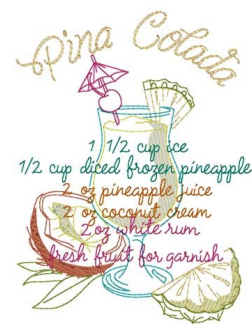 Pina Colada
1 1/2 cup ice
1/2 cup diced frozen pineapple
2 oz pineapple juice
2 oz coconut cream
2 oz white rum
fresh fruit for garnish